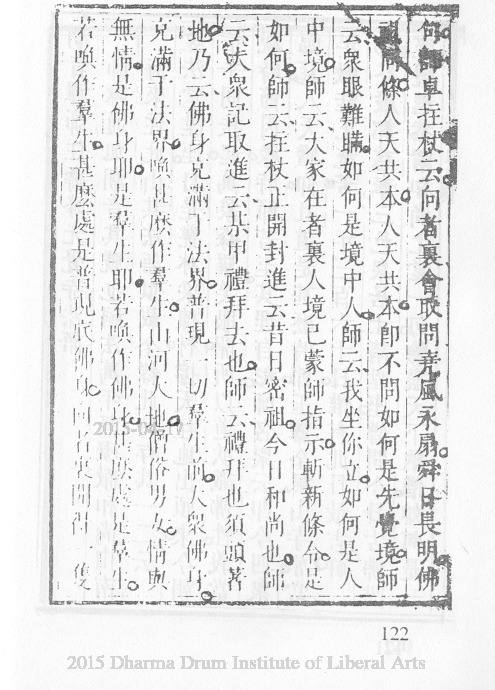 句師卓拄杖云向者裏會取問堯風永扇舜日長明佛
祖同條人天共本人天共本卽不問如何是先覺境師
云衆眼難瞞如何是境中人師云我坐你立如何是人
中境師云大家在者裏人境已蒙師指示斬新條令是
如何師云拄杖正開封進云昔日密祖今日和尚也師
云大衆記取進云某甲禮拜去也師云禮拜也須頭著
地乃云佛身充滿于法界普現一切羣生前大衆佛身
充滿于法界喚甚麽作羣生山河大地僧俗男女情與
無情是佛身耶是羣生耶若喚作佛身甚麽處是羣生
若喚作羣生甚麽處是普現底佛身向者裏開得一隻
122
2015-04-17
2015 Dharma Drum Institute of Liberal Arts